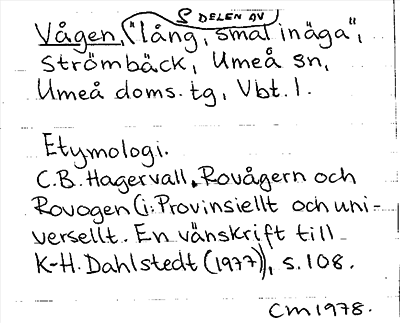 S DELEN AV
Vågen, "lång, smal inäga",
Strömbäck, Umeå sn,
Umeå doms. tg, Vbt. l.
Etymologi.
C.B. Hagervall, Rovågern och
Rovogen (i: Provinsiellt och uni-
versellt. En vänskrift till
K-H. Dahlstedt (1977)), s. 108.
CM 1978.